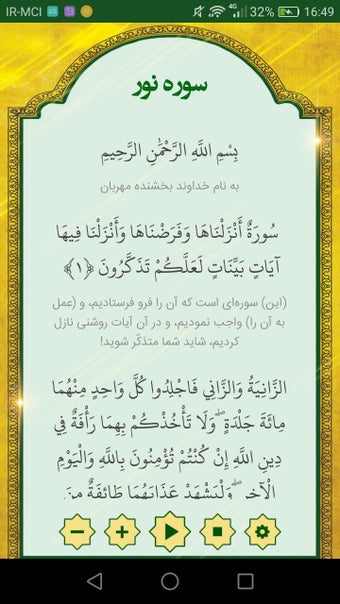 IR-MCI 4G 32% 16:49
سوره نور
بِسْمِ اللَّهِ الرَّحْمَٰنِ الرَّحِيمِ
به نام خداوند بخشنده مهربان
سُورَةٌ أَنْزَلْنَاهَا وَفَرَضْنَاهَا وَأَنْزَلْنَا فِيهَا
آيَاتٍ بَيِّنَاتٍ لَعَلَّكُمْ تَذَكَّرُونَ ﴿۱﴾
(این) سوره‌ای است که آن را فرو فرستادیم، و (عمل
به آن را) واجب نمودیم، و در آن آیات روشنی نازل
کردیم، شاید شما متذکّر شوید!
الزَّانِيَةُ وَالزَّانِي فَاجْلِدُوا كُلَّ وَاحِدٍ مِنْهُمَا
مِائَةَ جَلْدَةٍ ۖ وَلَا تَأْخُذْكُمْ بِهِمَا رَأْفَةٌ فِي
دِينِ اللَّهِ إِنْ كُنْتُمْ تُؤْمِنُونَ بِاللَّهِ وَالْيَوْمِ
الْآخِرِ ۖ وَلْيَشْهَدْ عَذَابَهُمَا طَائِفَةٌ مِنَ